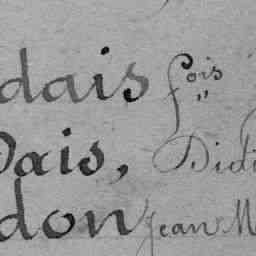 dais fois "
Dais, Dict
don Jean M